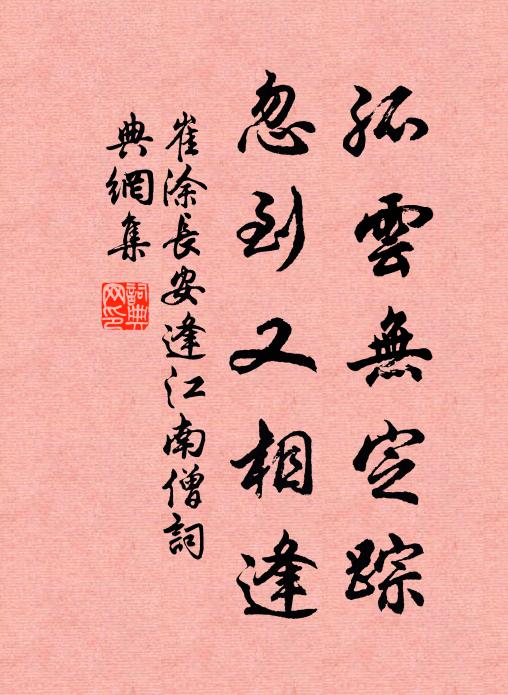 孤雲無定踪
忽到又相逢
崔涂長安逢江南僧詞
典網集
詞典网印